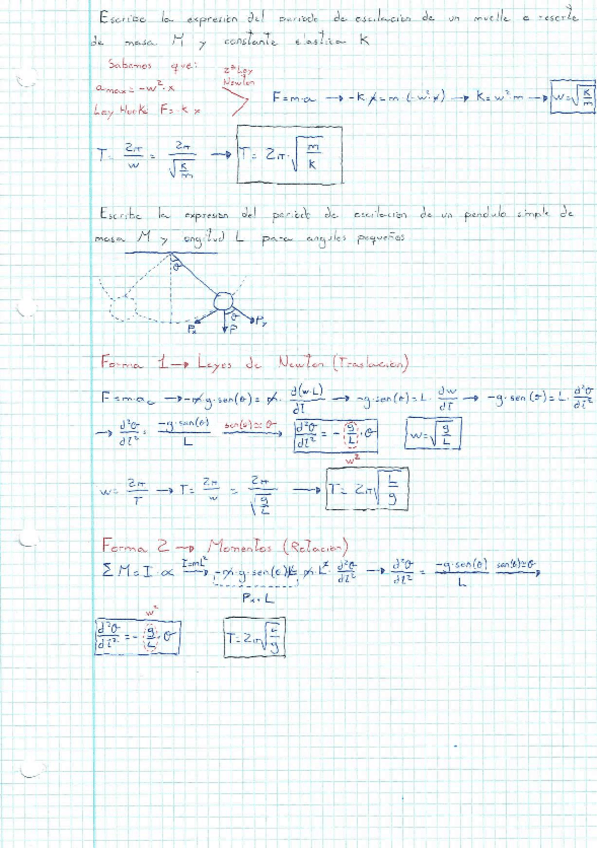 Escribe la expresión del periodo de oscilación de un muelle o resorte
de masa M y constante elastica K
Sabemos que:
2ª Ley
Newton
amax = -w²·x
Ley Hooke F = -k x
F = m·a → -k x = m (-w²·x) → K = w² m → w = √(K/m)
T = 2π/w = 2π/√(K/m) → T = 2π·√(m/K)
Escribe la expresión del periodo de oscilación de un pendulo simple de
masa M y longitud L para angulos pequeños
θ
θ
Px P Py
Forma 1 → Leyes de Newton (Traslación)
→ -m g·sen(θ) = m · d(w·L)/dt → -g·sen(θ) = L · dw/dt → -g·sen(θ) = L · d²θ/dt²
→ d²θ/dt² = -g·sen(θ)/L sen(θ)≃θ → d²θ/dt² = -(g/L)·θ w = √(g/L)
w²
w = 2π/T → T = 2π/w = 2π/√(g/L) → T = 2π√(L/g)
Forma 2 → Momentos (Rotación)
ΣM = I·α I=mL² → -m·g·sen(θ)L = m·L² · d²θ/dt² → d²θ/dt² = -g·sen(θ)/L sen(θ)≃θ →
Px·L
w²
d²θ/dt² = -(g/L)·θ T = 2π√(L/g)